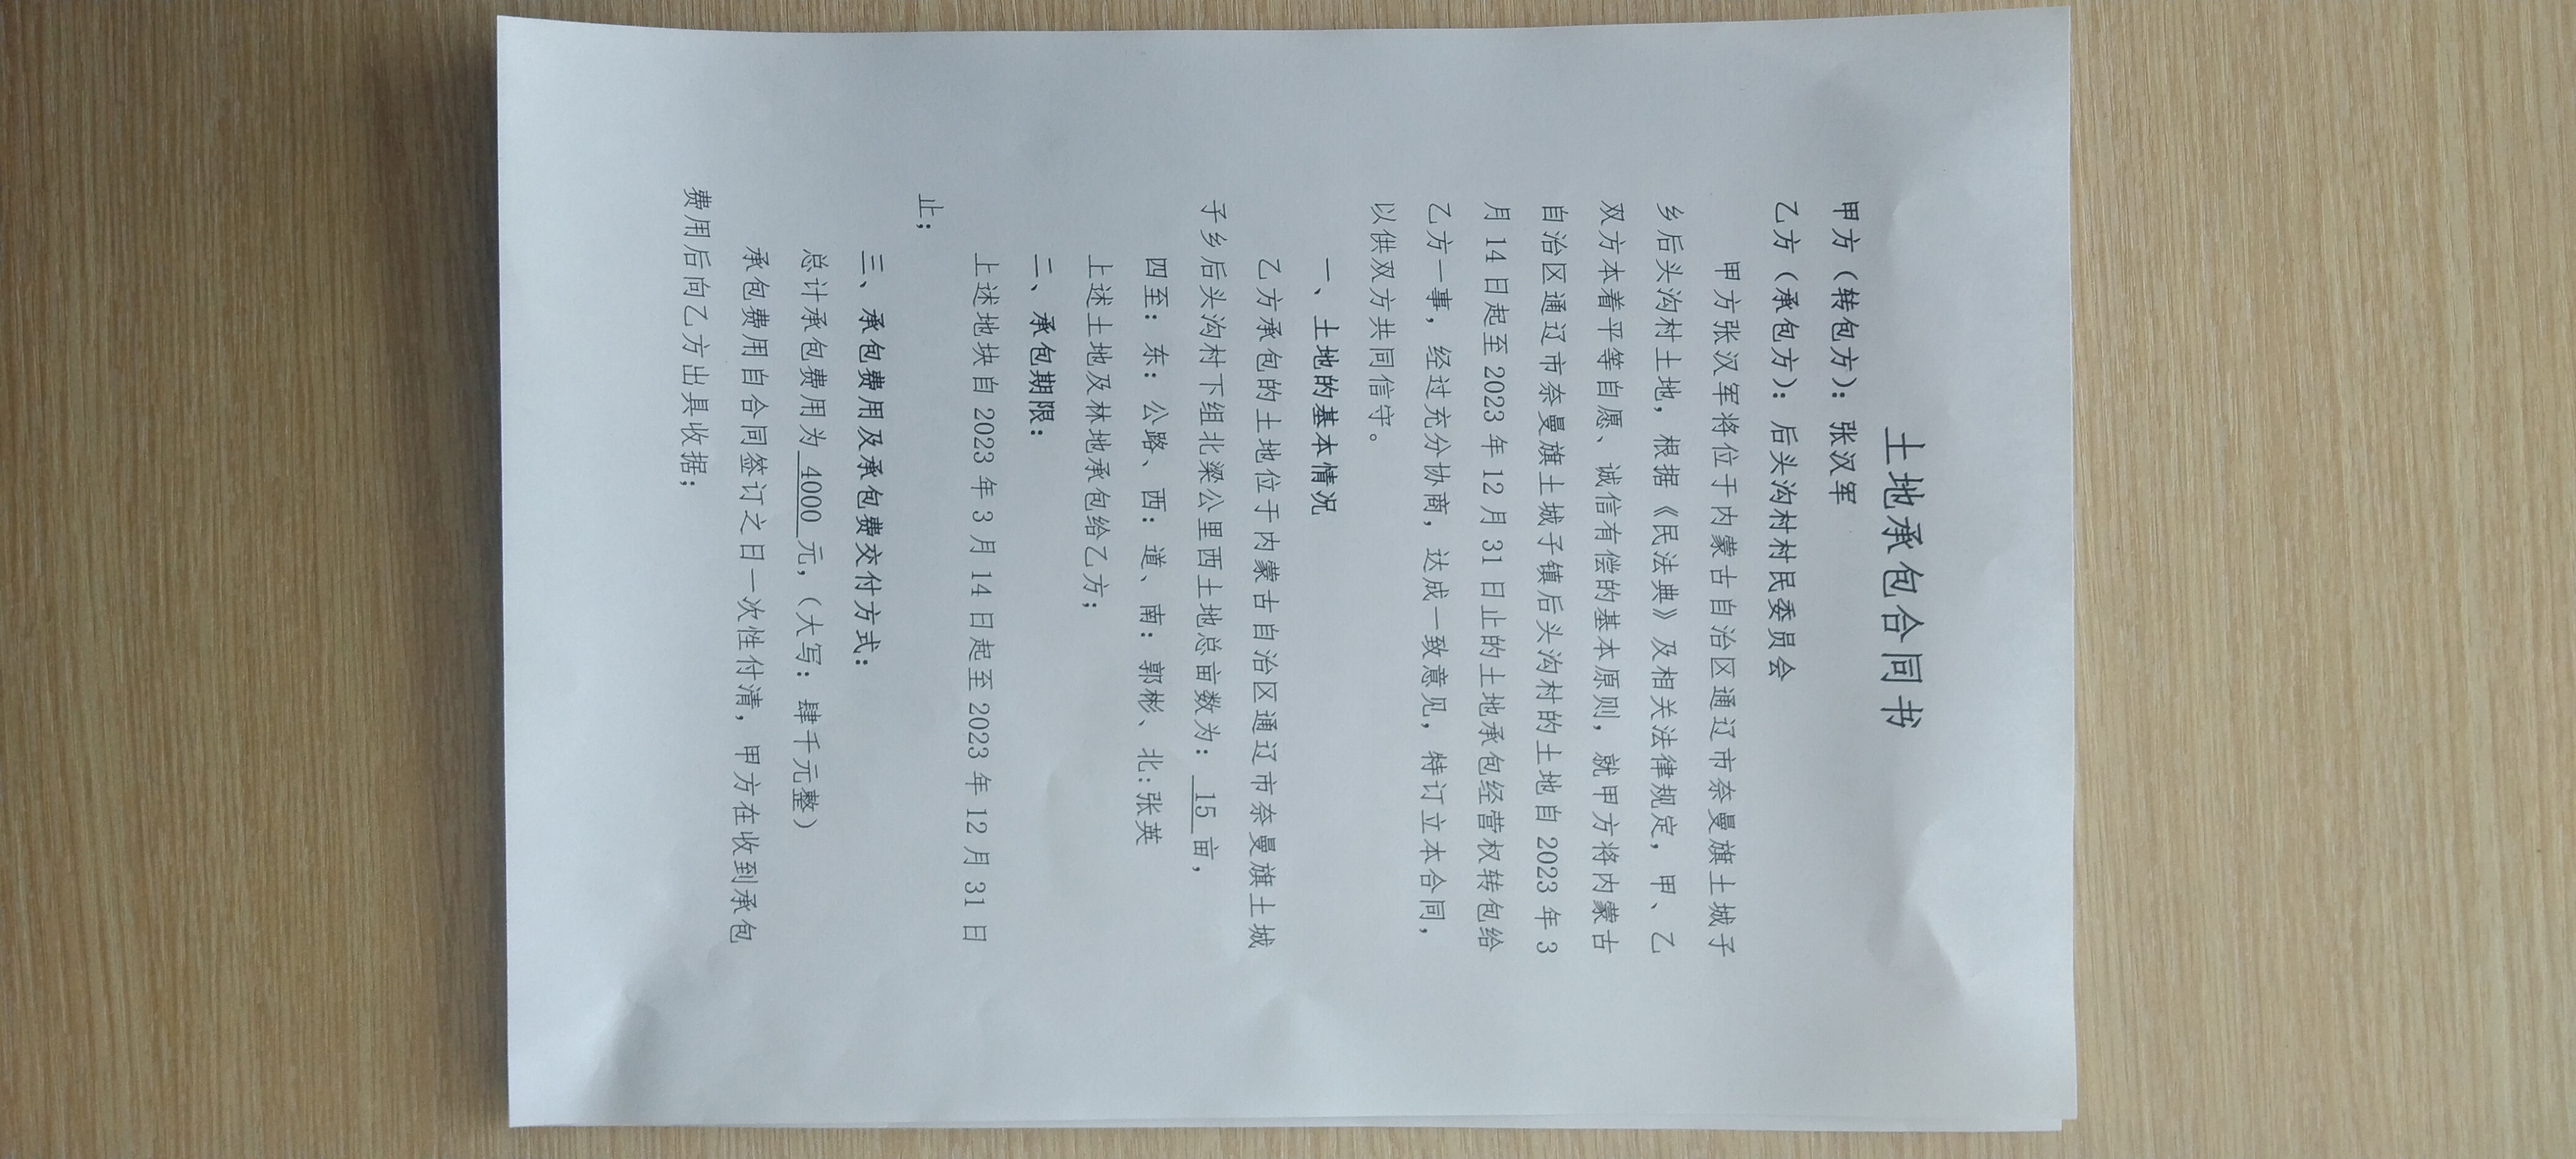 土地承包合同书
甲方（转包方）：张汉军
乙方（承包方）：后头沟村村民委员会
甲方张汉军将位于内蒙古自治区通辽市奈曼旗土城子
乡后头沟村土地，根据《民法典》及相关法律规定，甲、乙
双方本着平等自愿、诚信有偿的基本原则，就甲方将内蒙古
自治区通辽市奈曼旗土城子镇后头沟村的土地自 2023 年 3
月 14 日起至 2023 年 12 月 31 日止的土地承包经营权转包给
乙方一事，经过充分协商，达成一致意见，特订立本合同，
以供双方共同信守。
一、土地的基本情况
乙方承包的土地位于内蒙古自治区通辽市奈曼旗土城
子乡后头沟村下组北梁公里西土地总亩数为：15 亩，
四至：东：公路、西：道、南：郭彬、北:张英
上述土地及林地承包给乙方；
二、承包期限：
上述地块自 2023 年 3 月 14 日起至 2023 年 12 月 31 日
止；
三、承包费用及承包费交付方式：
总计承包费用为 4000 元，（大写：肆千元整）
承包费用自合同签订之日一次性付清，甲方在收到承包
费用后向乙方出具收据；